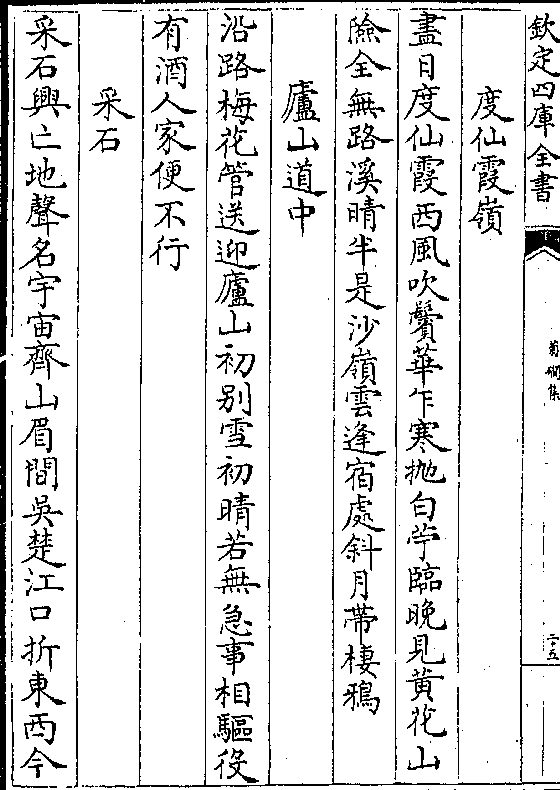 欽定四庫全書
菊磵集
二十五
度仙霞嶺
盡日度仙霞西風吹鬢華乍寒抛白苧臨晚見黄花山
險全無路溪晴半是沙嶺雲逢宿處斜月帶棲鴉
廬山道中
沿路梅花管送迎廬山初别雪初晴若無急事相驅役
有酒人家便不行
采石
采石興亡地聲名宇宙齊山眉間吳楚江口折東西今